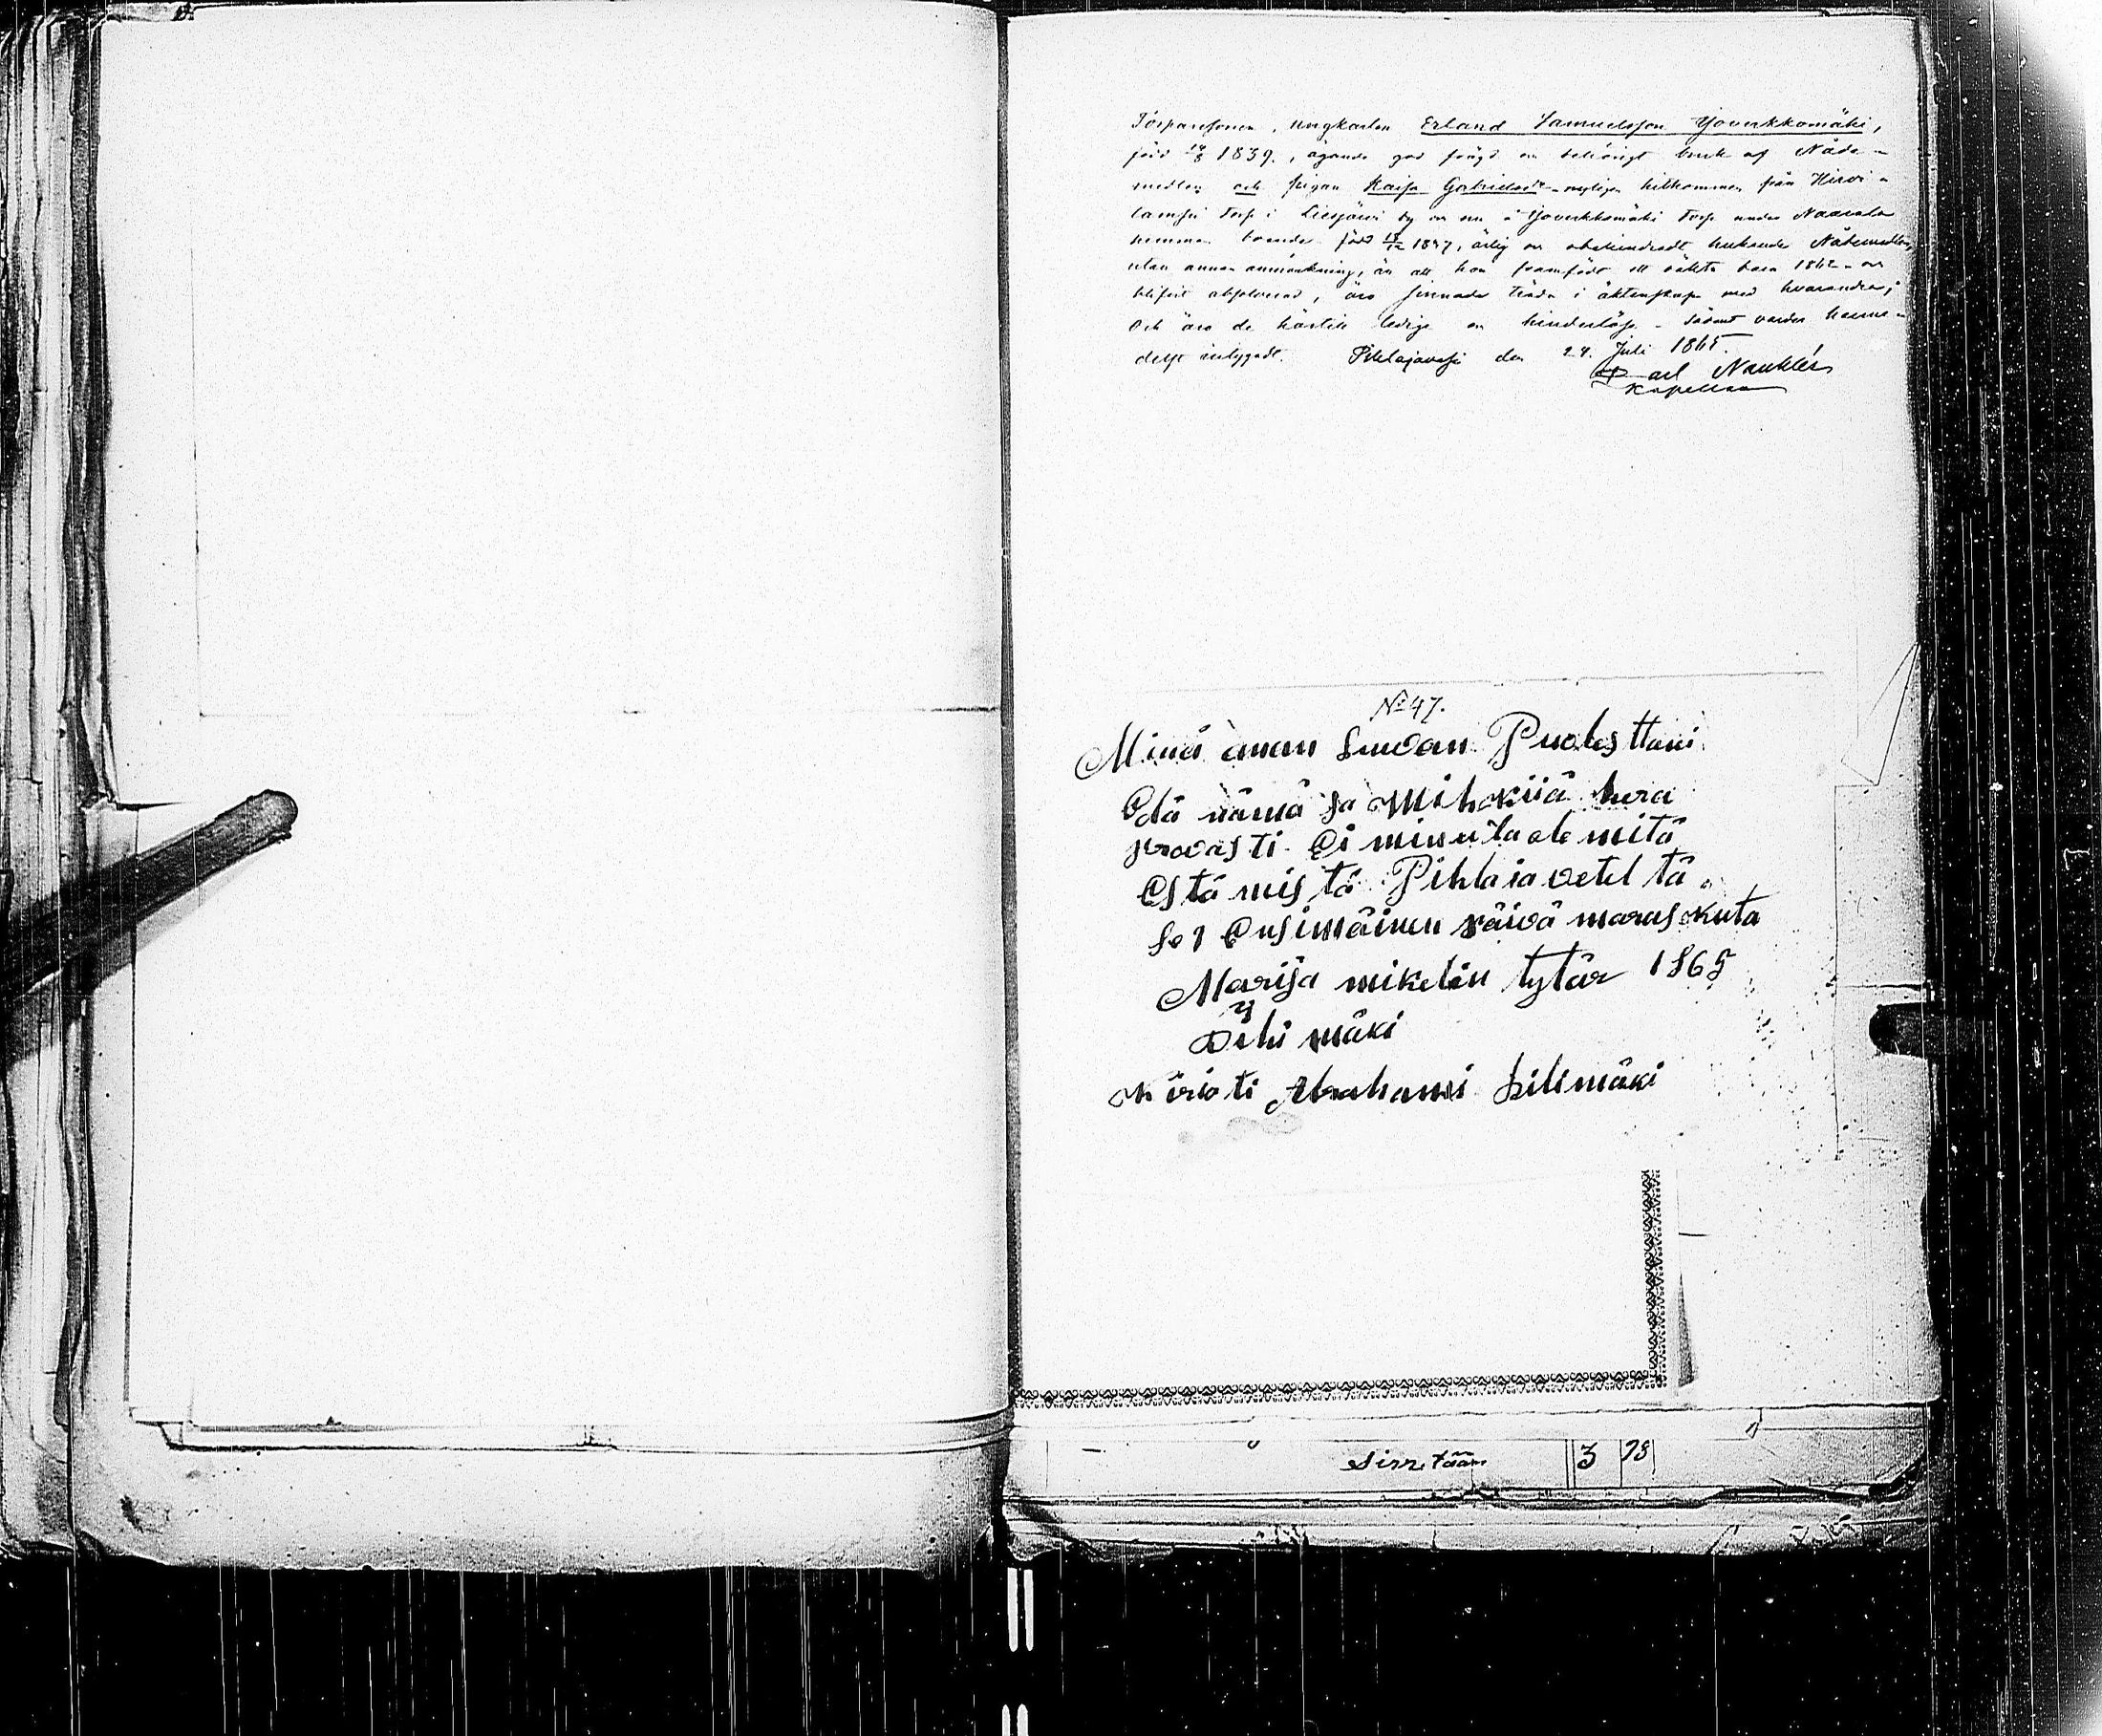 Torparesonen, ungkarlen Erland Samuelsson Joverkkomäki,
född 14/8 1839, ägande god frägd en behörigt bruk af Nåde-
medlen och pigan Kaisa Gabrielsdr nyligen hitkommen från Hirvi-
lampi torp i Liesjärvi by en nu å Joverkkomäki torp under
hemman boende född 1847, ärlig en obehindradt brukande Nådemedlen
utan annan anmärkning, än att hon framfödt ett oäkta barn 1862 en
blifvit absolverad, äro sinnade träda i äktenskap med hvarandra;
Och äro de härtill lediga en hinderlösa - sådant varder
intygadt. Pihlajavesi den 24. Juli 1865.
Carl Nauklér
Kapellan
No 47.
Minä anan luvan Puolesttani
Etä nämä sa Mihokiiä hera
provasti Ei minula ole mitä
Estä mistä Pihlaia vetel tä
se 1 Ensimäinen päivä maraskuta
Marija mikelin tytär 1865
Öhi mäki
kirioti Abrahami Lilimäki
Siirretään 3 78